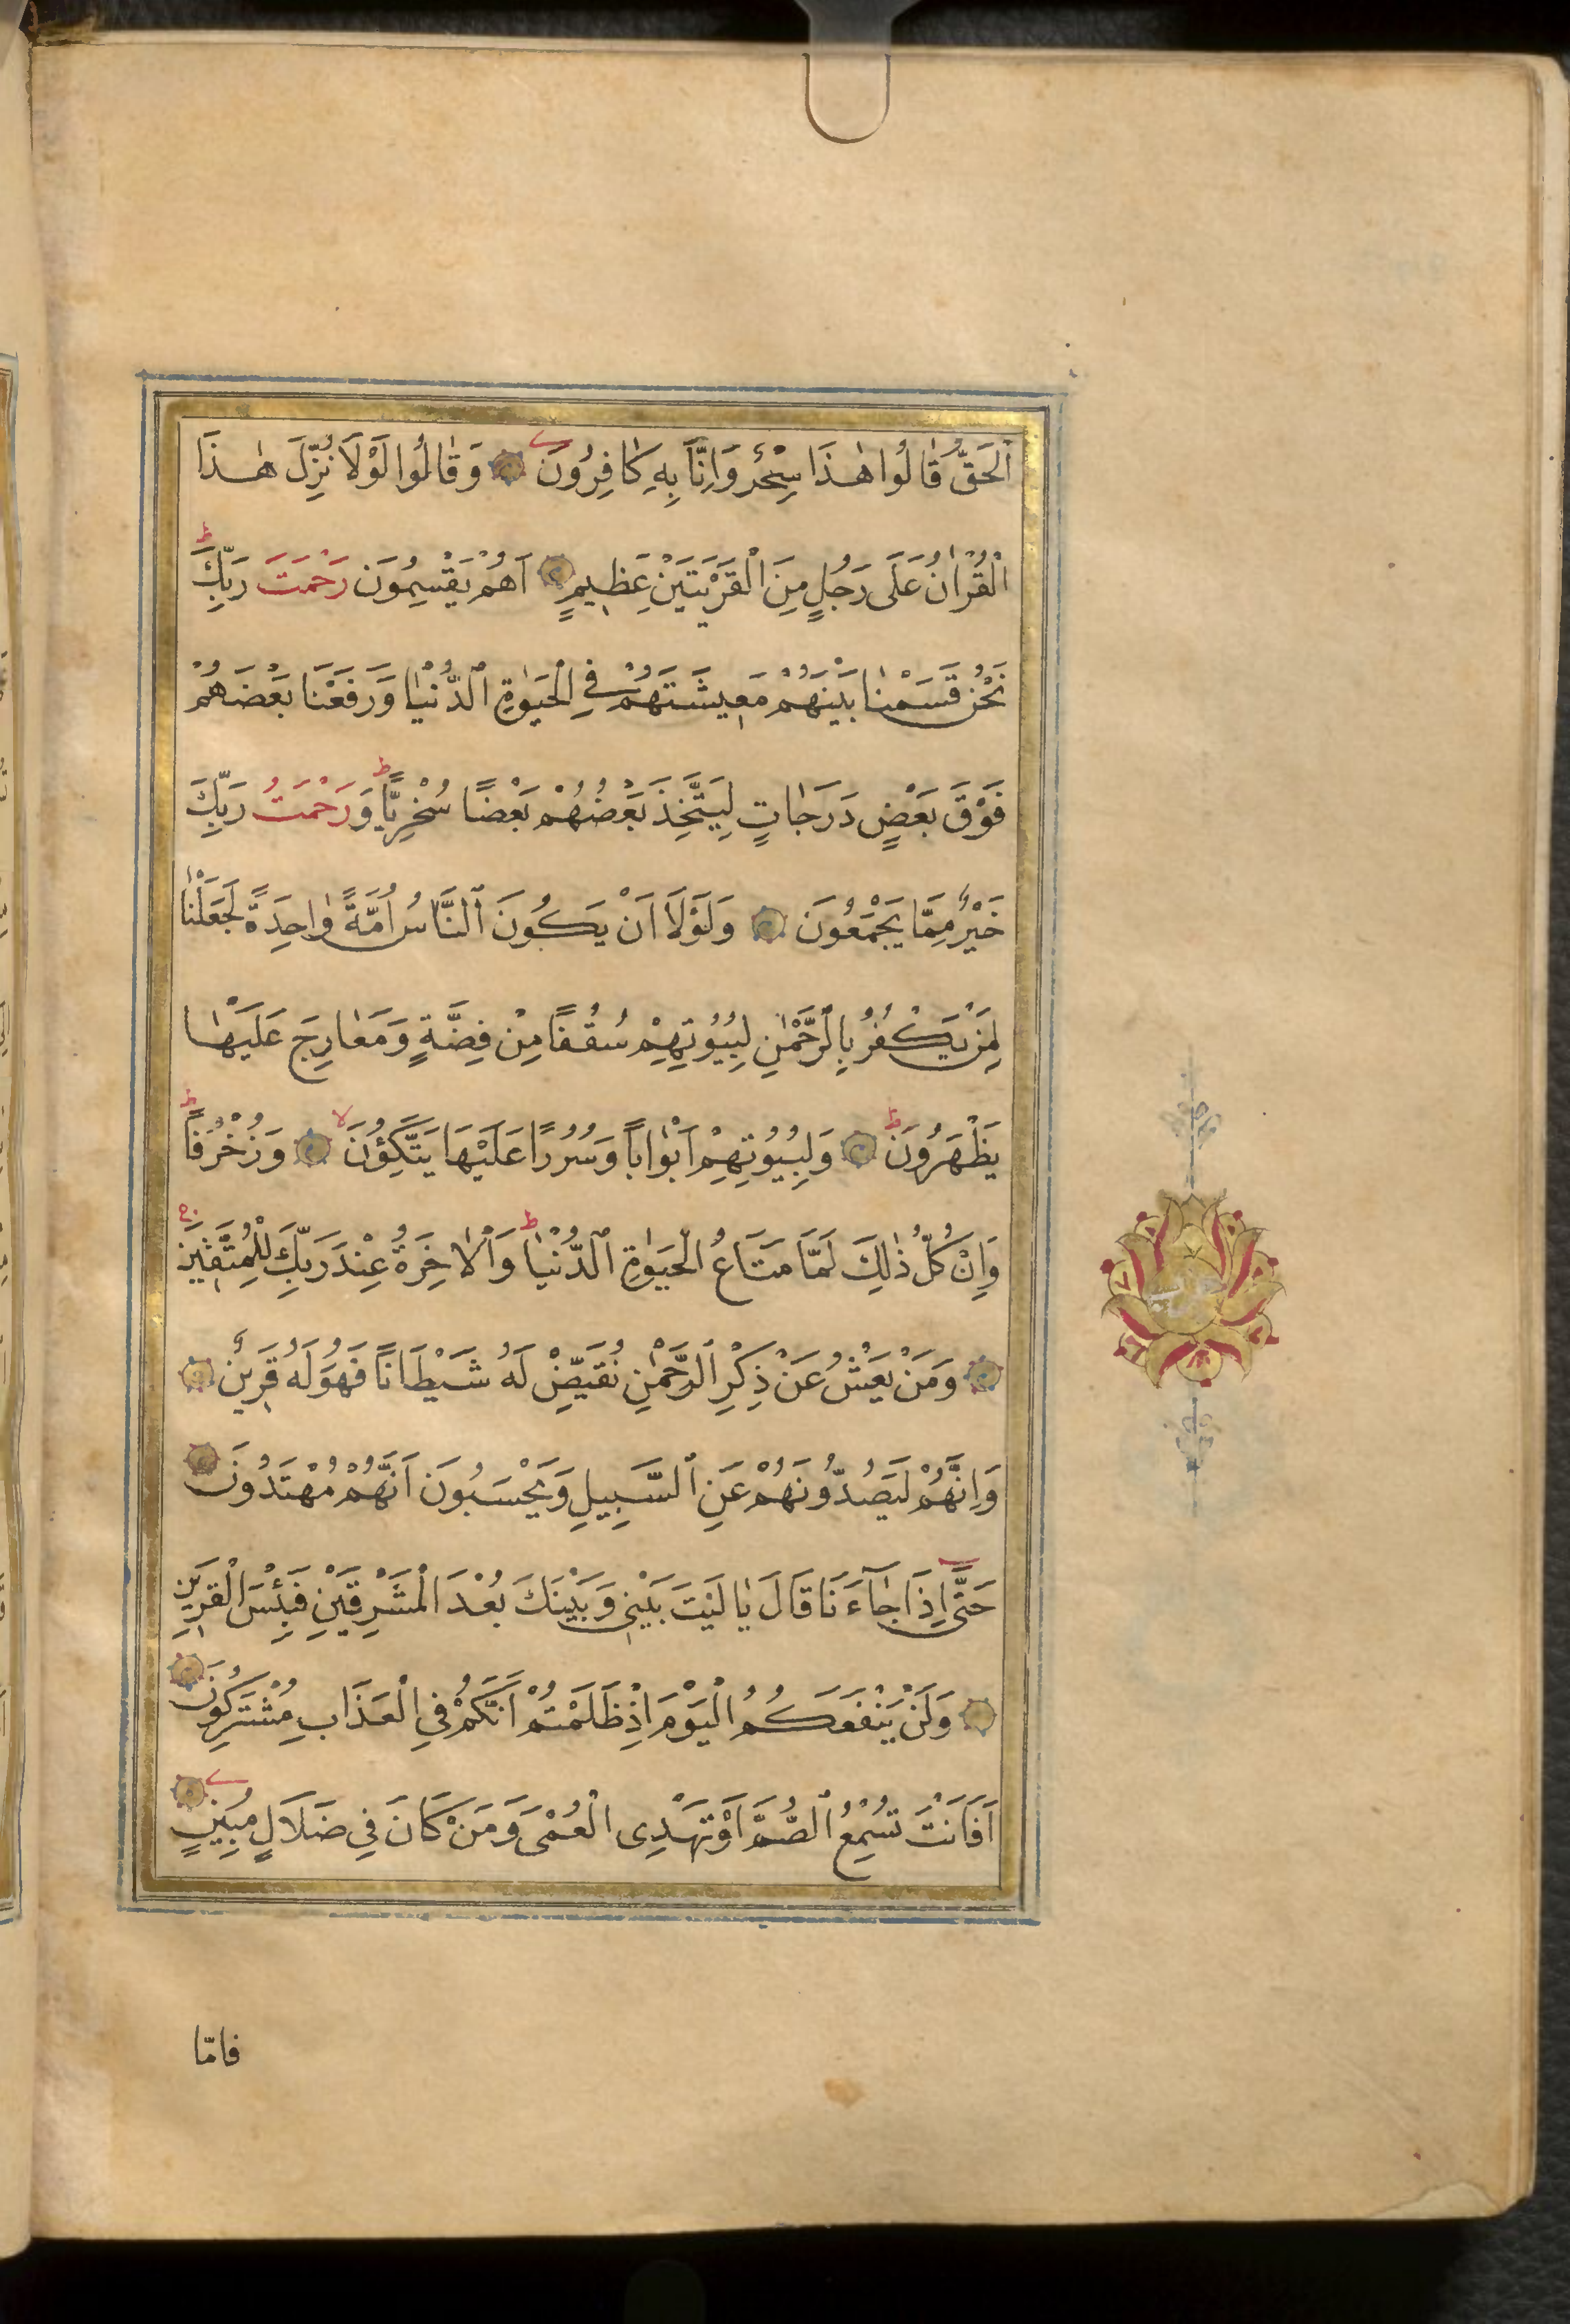 اَلْحَقُّ قَالُوا هٰذَا سِحْرٌ وَاِنَّا بِهِ كَافِرُونَ وَقَالُوا لَوْلَا نُزِّلَ هٰذَا
الْقُرْاٰنُ عَلَى رَجُلٍ مِنَ الْقَرْيَتَيْنِ عَظِيمٍ اَهُمْ يَقْسِمُونَ رَحْمَتَ رَبِّكَ ط
نَحْنُ قَسَمْنَا بَيْنَهُمْ مَعِيشَتَهُمْ فِي الْحَيٰوةِ الدُّنْيَا وَرَفَعْنَا بَعْضَهُمْ
فَوْقَ بَعْضٍ دَرَجَاتٍ لِيَتَّخِذَ بَعْضُهُمْ بَعْضًا سُخْرِيًّا ط وَرَحْمَتُ رَبِّكَ
خَيْرٌ مِمَّا يَجْمَعُونَ وَلَوْلَا اَنْ يَكُونَ النَّاسُ اُمَّةً وَاحِدَةً لَجَعَلْنَا
لِمَنْ يَكْفُرُ بِالرَّحْمٰنِ لِبُيُوتِهِمْ سُقُفًا مِنْ فِضَّةٍ وَمَعَارِجَ عَلَيْهَا
يَظْهَرُونَ ط وَلِبُيُوتِهِمْ اَبْوَابًا وَسُرُرًا عَلَيْهَا يَتَّكِؤُنَ لا وَزُخْرُفًا ط
وَاِنْ كُلُّ ذٰلِكَ لَمَّا مَتَاعُ الْحَيٰوةِ الدُّنْيَا ط وَالْاٰخِرَةُ عِنْدَ رَبِّكَ لِلْمُتَّقِينَ
وَمَنْ يَعْشُ عَنْ ذِكْرِ الرَّحْمٰنِ نُقَيِّضْ لَهُ شَيْطَانًا فَهُوَ لَهُ قَرِينٌ
وَاِنَّهُمْ لَيَصُدُّونَهُمْ عَنِ السَّبِيلِ وَيَحْسَبُونَ اَنَّهُمْ مُهْتَدُونَ
حَتّٰى اِذَا جَاءَنَا قَالَ يَا لَيْتَ بَيْنِي وَبَيْنَكَ بُعْدَ الْمَشْرِقَيْنِ فَبِئْسَ الْقَرِينُ
وَلَنْ يَنْفَعَكُمُ الْيَوْمَ اِذْ ظَلَمْتُمْ اَنَّكُمْ فِي الْعَذَابِ مُشْتَرِكُونَ
اَفَاَنْتَ تُسْمِعُ الصُّمَّ اَوْ تَهْدِى الْعُمْىَ وَمَنْ كَانَ فِي ضَلَالٍ مُبِينٍ
فامّا